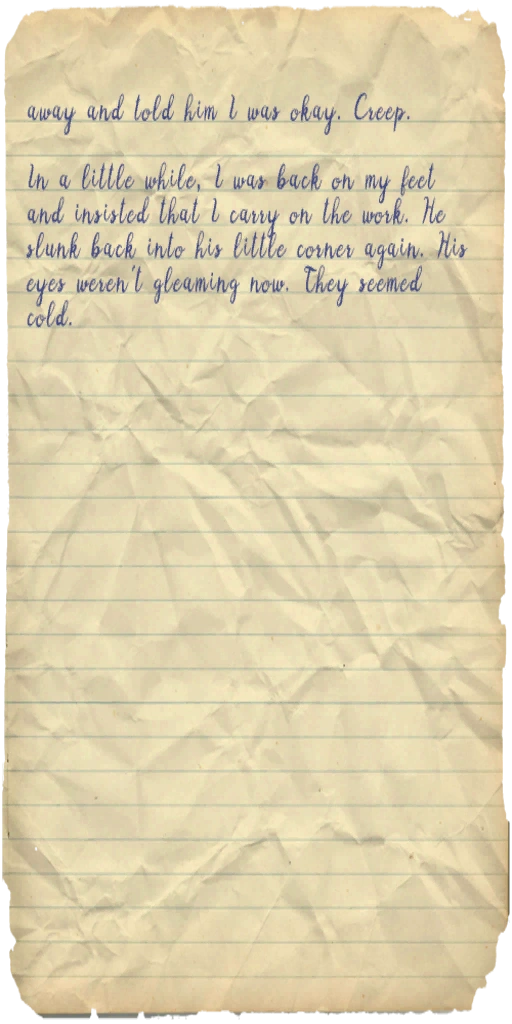 away and told him I was okay. Creep.
In a little while, I was back on my feet
and insisted that I carry on the work. He
slunk back into his little corner again. His
eyes weren't gleaming now. They seemed
cold.